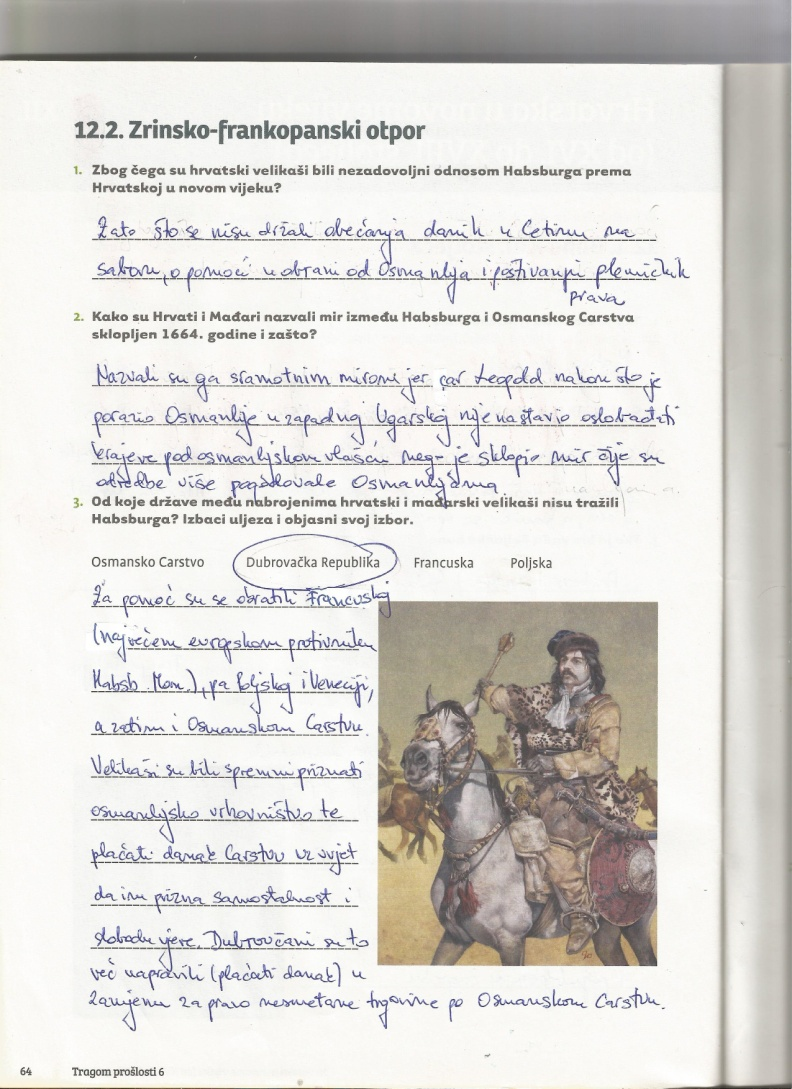 12.2. Zrinsko-frankopanski otpor
1. Zbog čega su hrvatski velikaši bili nezadovoljni odnosom Habsburga prema
Hrvatskoj u novom vijeku?
Zato što se nisu držali obećanja danih u Cetinu na
saboru, o pomoći u obrani od Osmanlija i poštivanju plemićkih
prava
2. Kako su Hrvati i Mađari nazvali mir između Habsburga i Osmanskog Carstva
sklopljen 1664. godine i zašto?
Nazvali su ga sramotnim mirom jer car Leopold nakon što je
porazio Osmanlije u zapadnoj Ugarskoj nije nastavio oslobađati
krajeve pod osmanlijskom vlašću nego je sklopio mir čije su
odredbe više pogodovale Osmanlijama
3. Od koje države među nabrojenima hrvatski i mađarski velikaši nisu tražili
Habsburga? Izbaci uljeza i objasni svoj izbor.
Osmansko Carstvo Dubrovačka Republika Francuska Poljska
Za pomoć su se obratili Francuskoj
(najvećem europskom protivniku
Habsb. Mon.), pa Poljskoj i Veneciji,
a zatim i Osmanskom Carstvu.
Velikaši su bili spremni priznati
osmanlijsko vrhovništvo te
plaćati danak Carstvu uz uvjet
da im prizna samostalnost i
slobodu vjere. Dubrovčani su to
već napravili (plaćati danak) u
zamjenu za pravo nesmetane trgovine po Osmanskom Carstvu.
64 Tragom prošlosti 6